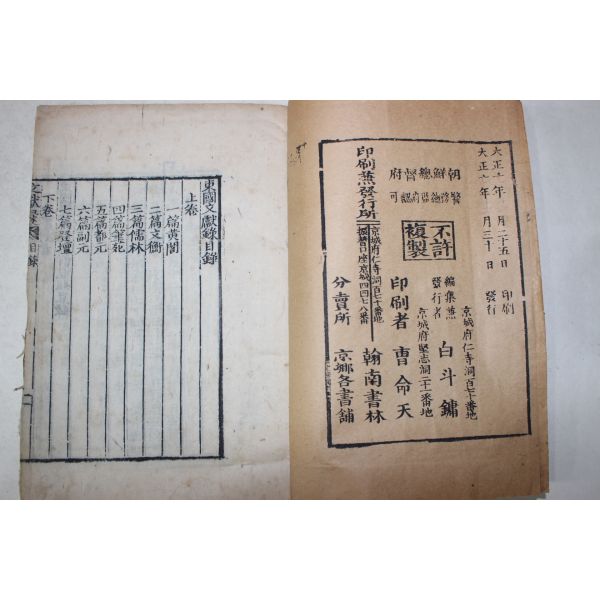 大正十年 月二十五日 印刷
大正十年 月三十日 發行
朝鮮總督府
警務總督府認可
不許複製
京城府仁寺洞百七十番地
編集兼發行者 白斗鏞
京城府堅志洞二十一番地
印刷者 曺命天
印刷兼發行所
京城府仁寺洞百七十番地
振替口座京城四四七八番
翰南書林
分賣所 京鄉各書舖
東國文獻錄目錄
上卷
一篇黃閣
二篇文衡
三篇儒林
四篇筆苑
五篇都元
六篇副元
七篇登壇
下卷
文獻錄 目錄